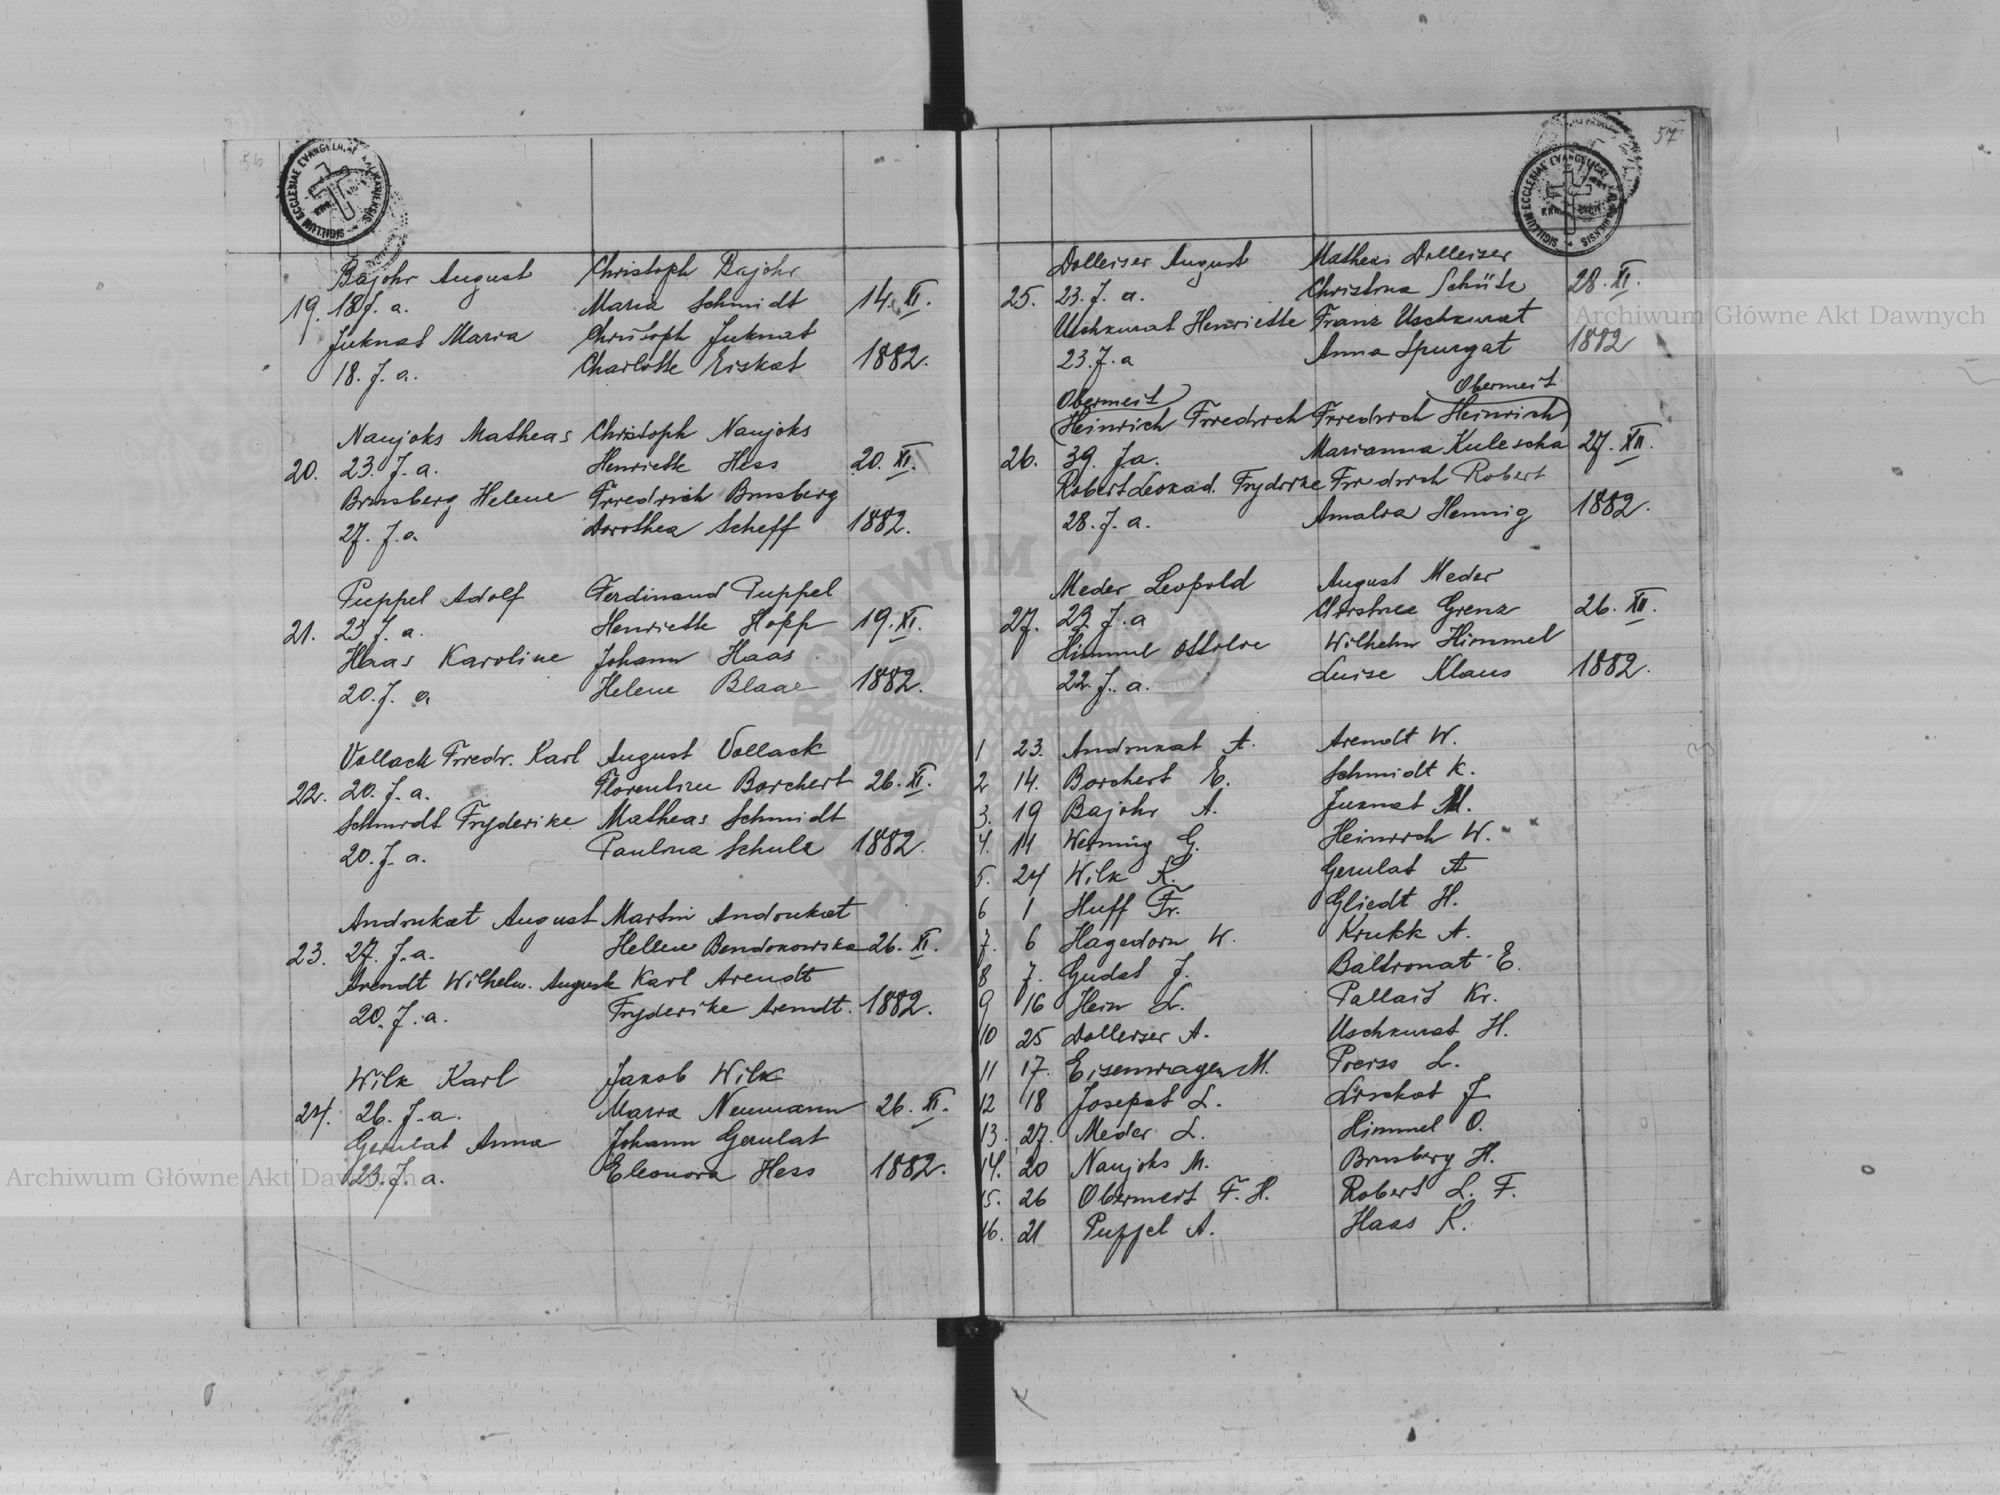 56
SIGILLUM ECCLESIAE EVANGELICAE
Bajohr August Christoph Bajohr
19. 18 J. a. Maria Schmidt 14. XI.
Juknat Maria Christoph Juknat
18. J. a. Charlotte Eiskat 1882.
Naujoks Matheas Christoph Naujoks
20. 23. J. a. Henriette Hess 20. XI.
Brinsberg Helene Friedrich Brinsberg
27. J. a. Dorothea Scheff 1882.
Puppel Adolf Ferdinand Puppel
21. 23 J. a. Henriette Hopp 19. XI.
Haas Karoline Johann Haas
20. J. a Helene Blaae 1882.
Vollack Friedr. Karl August Vollack
22. 20. J. a. Florentine Borchert 26. XI.
Schmidt Fryderike Matheas Schmidt
20. J. a. Paulina Schulz 1882.
Andrukat August Martin Andrukat
23. 27. J. a. Hellene Bendorowska 26. XI.
Arendt Wilhelm. August Karl Arendt
20. J. a. Fryderike Arendt. 1882.
Wilk Karl Jakob Wilk
24. 26. J. a. Maria Neumann 26. XI.
Gerulat Anna Johann Gerulat
23. J. a. Eleonora Hess 1882.
57
SIGILLUM ECCLESIAE EVANGELICAE
Dolleiser August Matheas Dolleiser
25. 23. J. a. Christina Schütz 28. XI.
Uschkurat Henriette Franz Uschkurat
23. J. a Anna Spurgat 1882
Obermeit Obermeit
(Heinrich Friedrich Friedrich Heinrich)
26. 39. J a. Marianna Kulescha 27. XII.
Robert Leokad. Fryderike Friedrich Robert
28. J. a. Amalia Hennig 1882.
Meder Leopold August Meder
27. 29. J. a Christine Grenz 26. XII.
Himmel Ottilie Wilhelm Himmel
22. J. a. Luise Klaus 1882.
1 23. Andrukat A. Arendt W.
2 14. Borchert E. Schmidt K.
3. 19 Bajohr A. Juknat M.
4. 11 Werning G. Heinrich W.
5. 24 Wilk K. Gerulat A
6 1 Huff Fr. Gliedt H.
7. 6 Hagedorn W. Krukk A.
8 7. Gudat J. Baltronat E.
9 16 Hein L. Pallait Kr.
10 25 Dolleiser A. Uschkurat H.
11 17. Eisenwagen M. Preiss L.
12 18 Josepat L. Lirschat J
13. 27. Meder L. Himmel O.
14. 20 Naujoks M. Brinsberg H.
15. 26 Obermeit F. H. Robert L. F.
16. 21 Puppel A. Haas K.
Archiwum Główne Akt Dawnych
Archiwum Główne Akt Dawnych